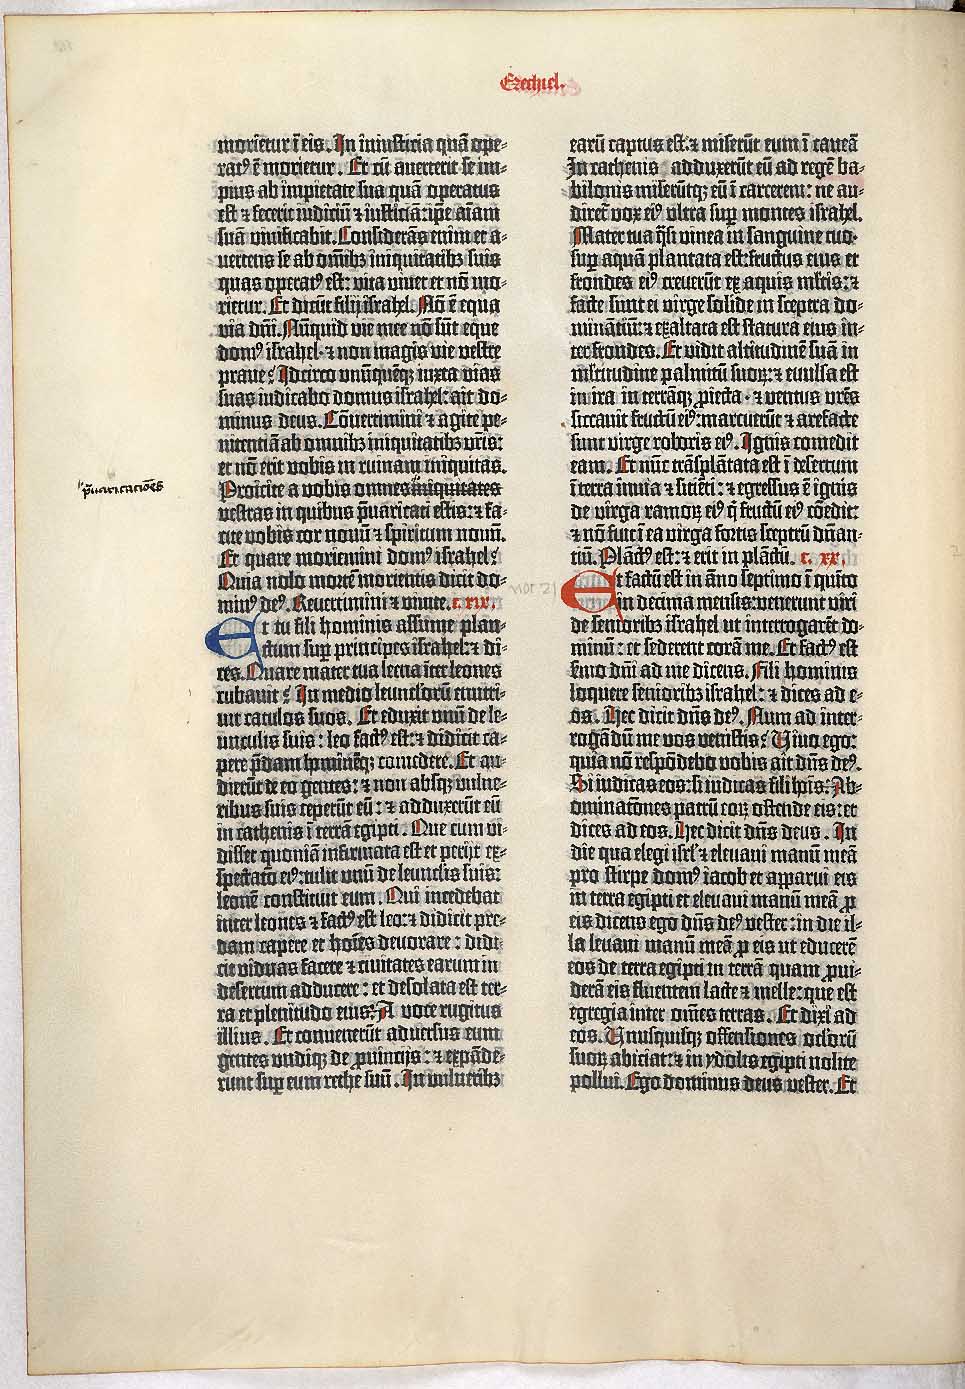 Ezechiel.
morietur ī eis. In iniusticia quā ope-
ratꝰ ē morietur. Et cū auerterit se im-
pius ab impietate sua quā operatus
est ⁊ fecerit iudiciū ⁊ iusticiā: ip̄e aīam
suā viuificabit. Considerās enim et a-
uertens se ab om̄ibꝫ iniquitatibꝫ suis
quas operatꝰ est: vita viuet et nō mo-
rietur. Et dicūt filij israhel. Nō ē equa
via dn̄i. Nūquid vie mee nō sūt eque
domꝰ israhel· ⁊ non magis vie vestre
praue? Idcirco vnūquēqꝫ iuxta vias
suas iudicabo domus israhel: ait do-
minus deus. Cōuertimini ⁊ agite pe-
nitentiā ab omnibꝫ iniquitatibꝫ vr̄is:
et nō erit vobis in ruinam iniquitas.
Proicite a vobis omnes iniquitates
p̄uaricatiōes
vestras in quibus p̄uaricati estis: ⁊ fa-
cite vobis cor nouū ⁊ spiritum nouū.
Et quare moriemini domꝰ israhel?
Quia nolo mortē morientis dicit do-
minꝰ deꝰ. Reuertimini ⁊ viuite. c. xix.
Et tu fili hominis assume plan-
ctum sup̄ principes israhel: ⁊ di-
ces. Quare mater tua leena īter leones
cubauit? In medio leunculorū enutri-
uit catulos suos. Et eduxit vnū de le-
unculis suis: leo factꝰ est: ⁊ didicit ca-
pere p̄dam hominēqꝫ comedere. Et au-
dierūt de eo gentes: ⁊ non absqꝫ vulne-
ribus suis ceperūt eū: ⁊ adduxerūt eū
in cathenis ī terrā egipti. Que cum vi-
disset quoniā infirmata est et perijt ex-
spectatō eiꝰ: tulit vnū de leunclis suis:
leonē constituit eum. Qui incedebat
inter leones ⁊ factꝰ est leo: ⁊ didicit pre-
dam capere et hoīes deuorare: didi-
cit viduas facere ⁊ ciuitates earum in
desertum adducere: et desolata est ter-
ra et plenitudo eius: A voce rugitus
illius. Et conuenerūt aduersus eum
gentes vndiqꝫ de ꝓuincijs: ⁊ expāde-
runt sup̄ eum rethe suū. In vulneribꝫ
earū captus est: ⁊ miserūt eum ī caueā
In cathenis adduxerūt eū ad regē ba-
bilonis miserūtqꝫ eū ī carcerem: ne au-
diret̄ vox eiꝰ vltra sup̄ montes israhel.
Mater tua q̄si vinea in sanguine tuo·
sup̄ aquā plantata est: fructus eius et
frondes eiꝰ creuerūt ex aquis ml̄tis: ⁊
facte sunt ei virge solide in sceptra do-
minātiū: ⁊ exaltata est statura eius in-
ter frondes. Et vidit altitudinē suā in
ml̄titudine palmitū suoꝝ: ⁊ euulsa est
in ira in terrāqꝫ ꝓiecta· ⁊ ventus vrēs
siccauit fructū eiꝰ: marcuerūt ⁊ arefacte
sunt virge roboris eiꝰ. Ignis comedit
eam. Et nūc trāsplātata est ī desertum
ī terra inuia ⁊ sitiēti: ⁊ egressus ē ignis
de virga ramoꝝ eiꝰ q̄ fructū eiꝰ cōedit:
⁊ nō fuit ī ea virga fortis sceptrū dn̄an-
tiū. Plāctꝰ est: ⁊ erit in plāctū. c. xx.
Et factū est in āno septimo ī quīto
in decima mensis: venerunt viri
de senioribꝫ israhel ut interrogarēt do-
minū: et sederent corā me. Et factꝰ est
sermo dn̄i ad me dicens. Fili hominis
loquere senioribꝫ israhel: ⁊ dices ad e-
os. Hec dicit dn̄s deꝰ. Num ad inter-
rogādū me vos venistis? Viuo ego:
quia nō respōdebo vobis ait dn̄s deꝰ.
Si iudicas eos: si iudicas fili hoīs: Ab-
ominatōnes patrū eoꝝ ostende eis: et
dices ad eos. Hec dicit dn̄s deus. In
die qua elegi isrl̄ ⁊ eleuaui manū meā
pro stirpe domꝰ iacob et apparui eis
in terra egipti et eleuaui manū meā ꝓ
eis dicens ego dn̄s deꝰ vester: in die il-
la leuaui manū meā ꝓ eis ut educerē
eos de terra egipti in terrā quam ꝓui-
derā eis fluentem lacte ⁊ melle: que est
egregia inter om̄es terras. Et dixi ad
eos. Vnusquisqꝫ offensiones oclorū
suoꝝ abiciat: ⁊ in ydolis egipti nolite
pollui. Ego dominus deus vester. Et